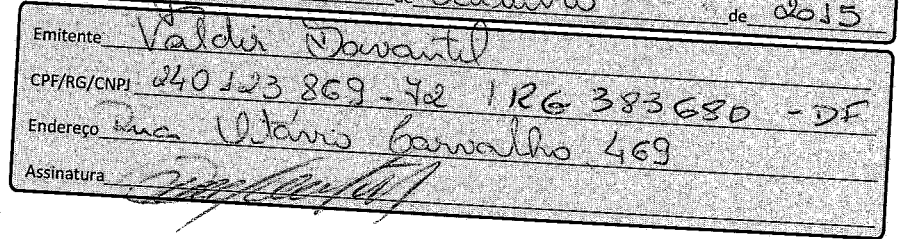 de de 2015
Emitente Valdir Davantel
CPF/RG/CNPJ 240 123 869-72 / RG 383680 - DF
Endereço Rua Otávio Carvalho 469
Assinatura